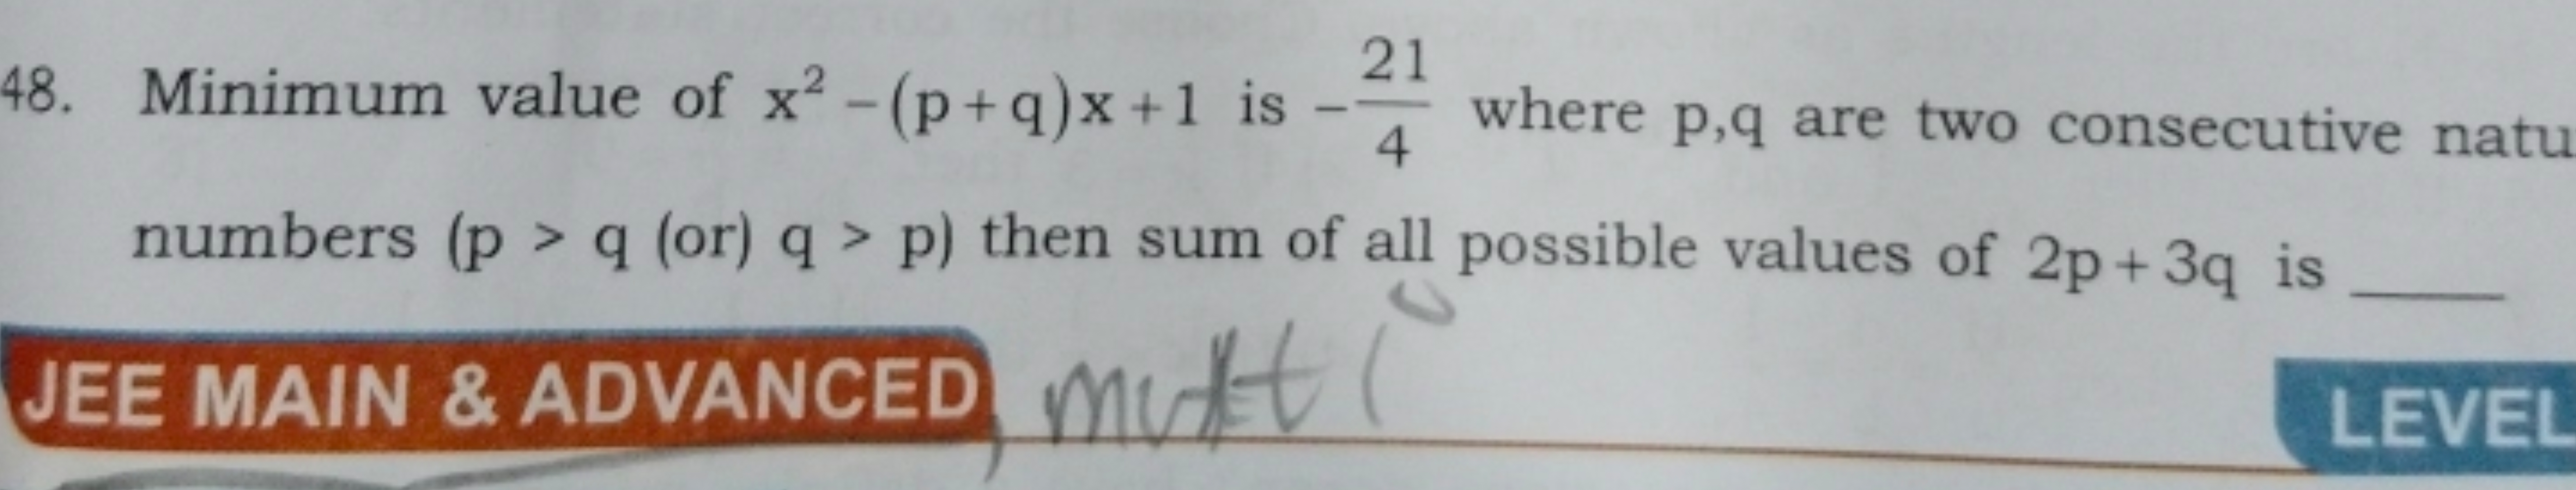 48. Minimum value of x² - (p+q)x+1 is -21/4 where p,q are two consecutive natu
numbers (p > q (or) q > p) then sum of all possible values of 2p+3q is ____
JEE MAIN & ADVANCED
LEVEL